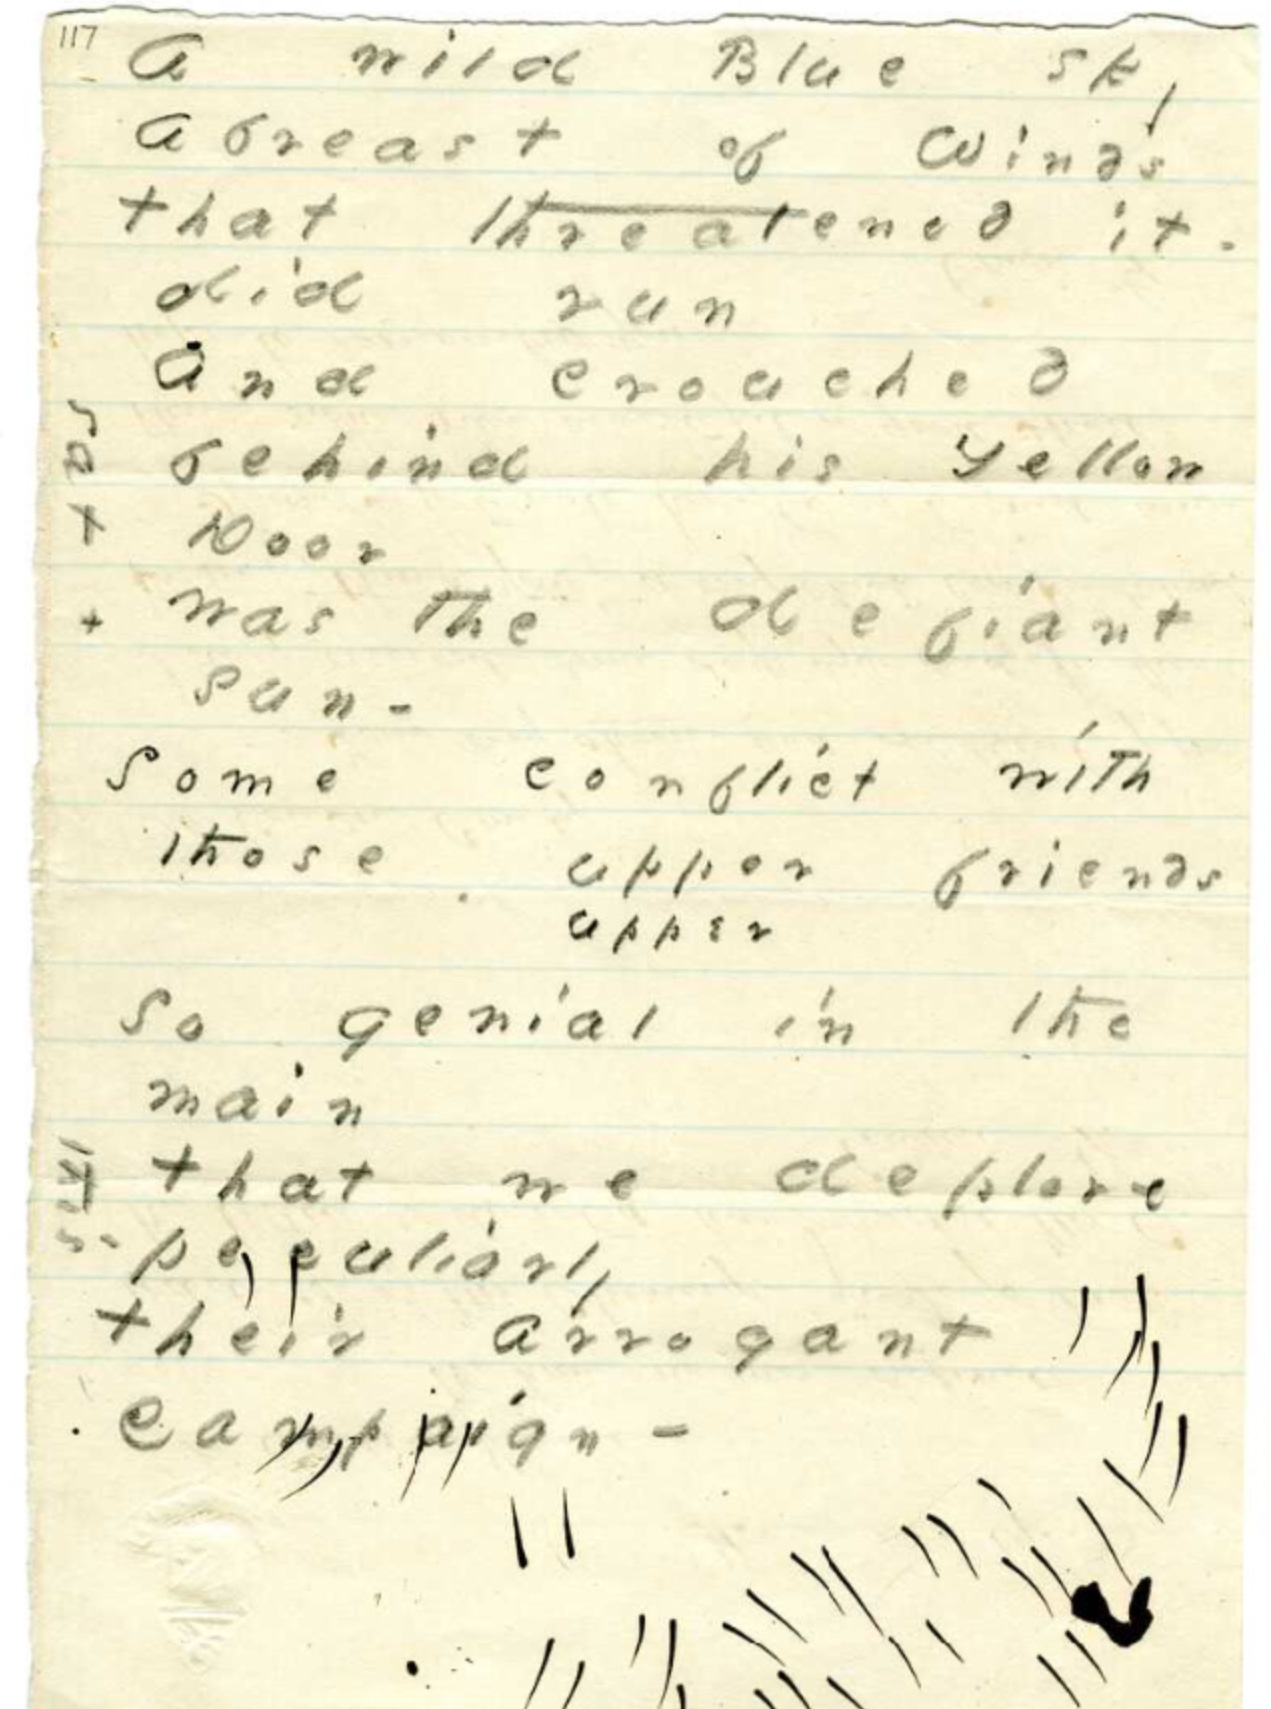 117
A wild Blue sky
abreast of Winds
that threatened it -
did run
And crouched
behind his Yellow
Door
was the defiant
sun -
Some conflict with
those upper friends
upper
So genial in the
main
that we deplore
peculiarly
their arrogant
campaign -